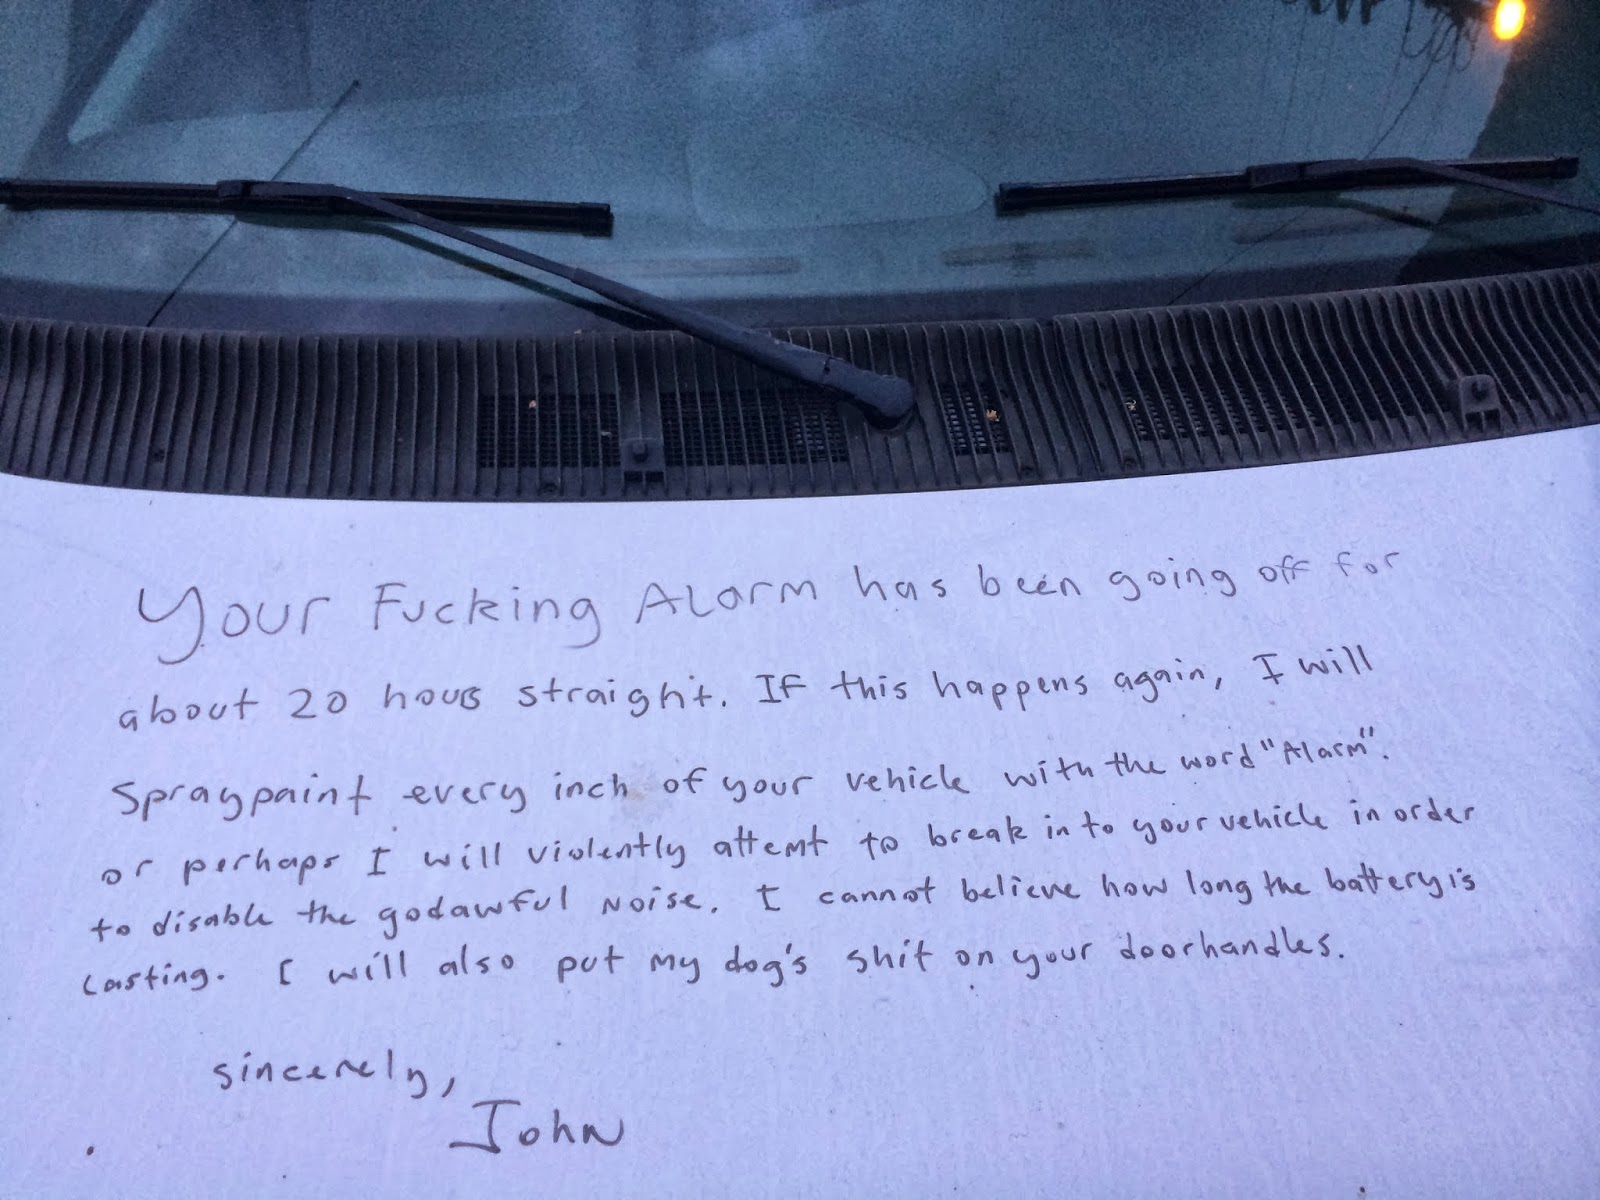 Your Fucking Alarm has been going off for
about 20 hours straight. If this happens again, I will
Spraypaint every inch of your vehicle with the word "Alarm".
or perhaps I will violently attemt to break in to your vehicle in order
to disable the godawful Noise. I cannot believe how long the battery is
Lasting. I will also put my dog's shit on your doorhandles.
sincerely,
John